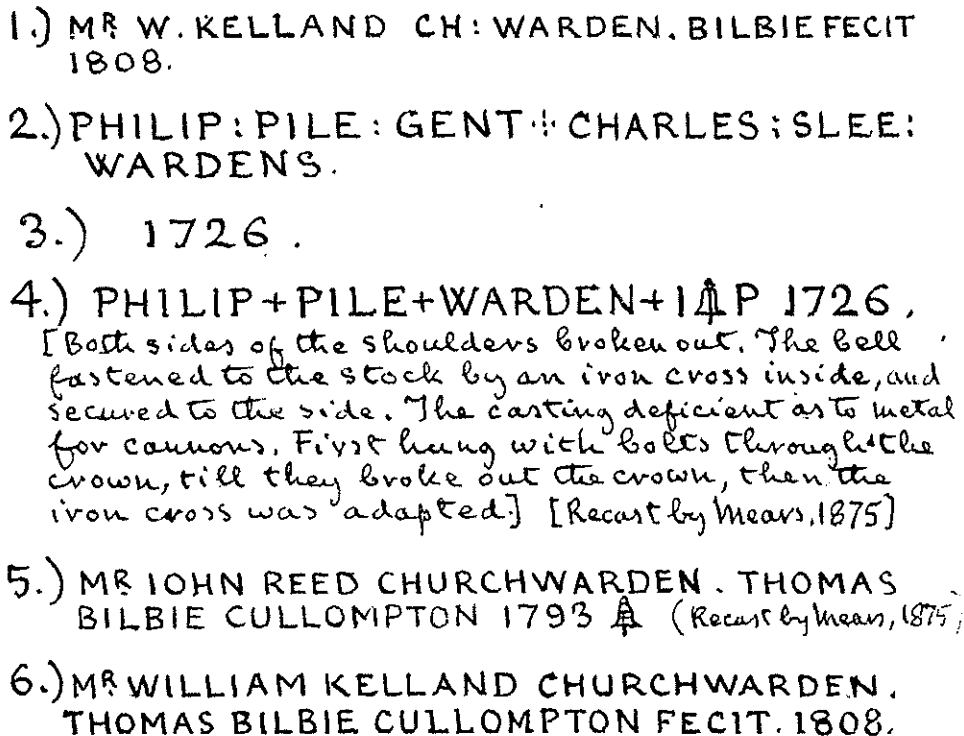 1.) MR W. KELLAND CH: WARDEN. BILBIE FECIT
1808.
2.) PHILIP : PILE : GENT ⁜ CHARLES ; SLEE :
WARDENS.
3.) 1726.
4.) PHILIP+PILE+WARDEN+I🔔P 1726.
[Both sides of the shoulders broken out. The bell
fastened to the stock by an iron cross inside, and
secured to the side. The casting deficient as to metal
for cannons. First hung with bolts through the
crown, till they broke out the crown, then the
iron cross was adapted.] [Recast by Mears, 1875]
5.) MR IOHN REED CHURCHWARDEN. THOMAS
BILBIE CULLOMPTON 1793 🔔 (Recast by Mears, 1875)
6.) MR WILLIAM KELLAND CHURCHWARDEN.
THOMAS BILBIE CULLOMPTON FECIT. 1808.